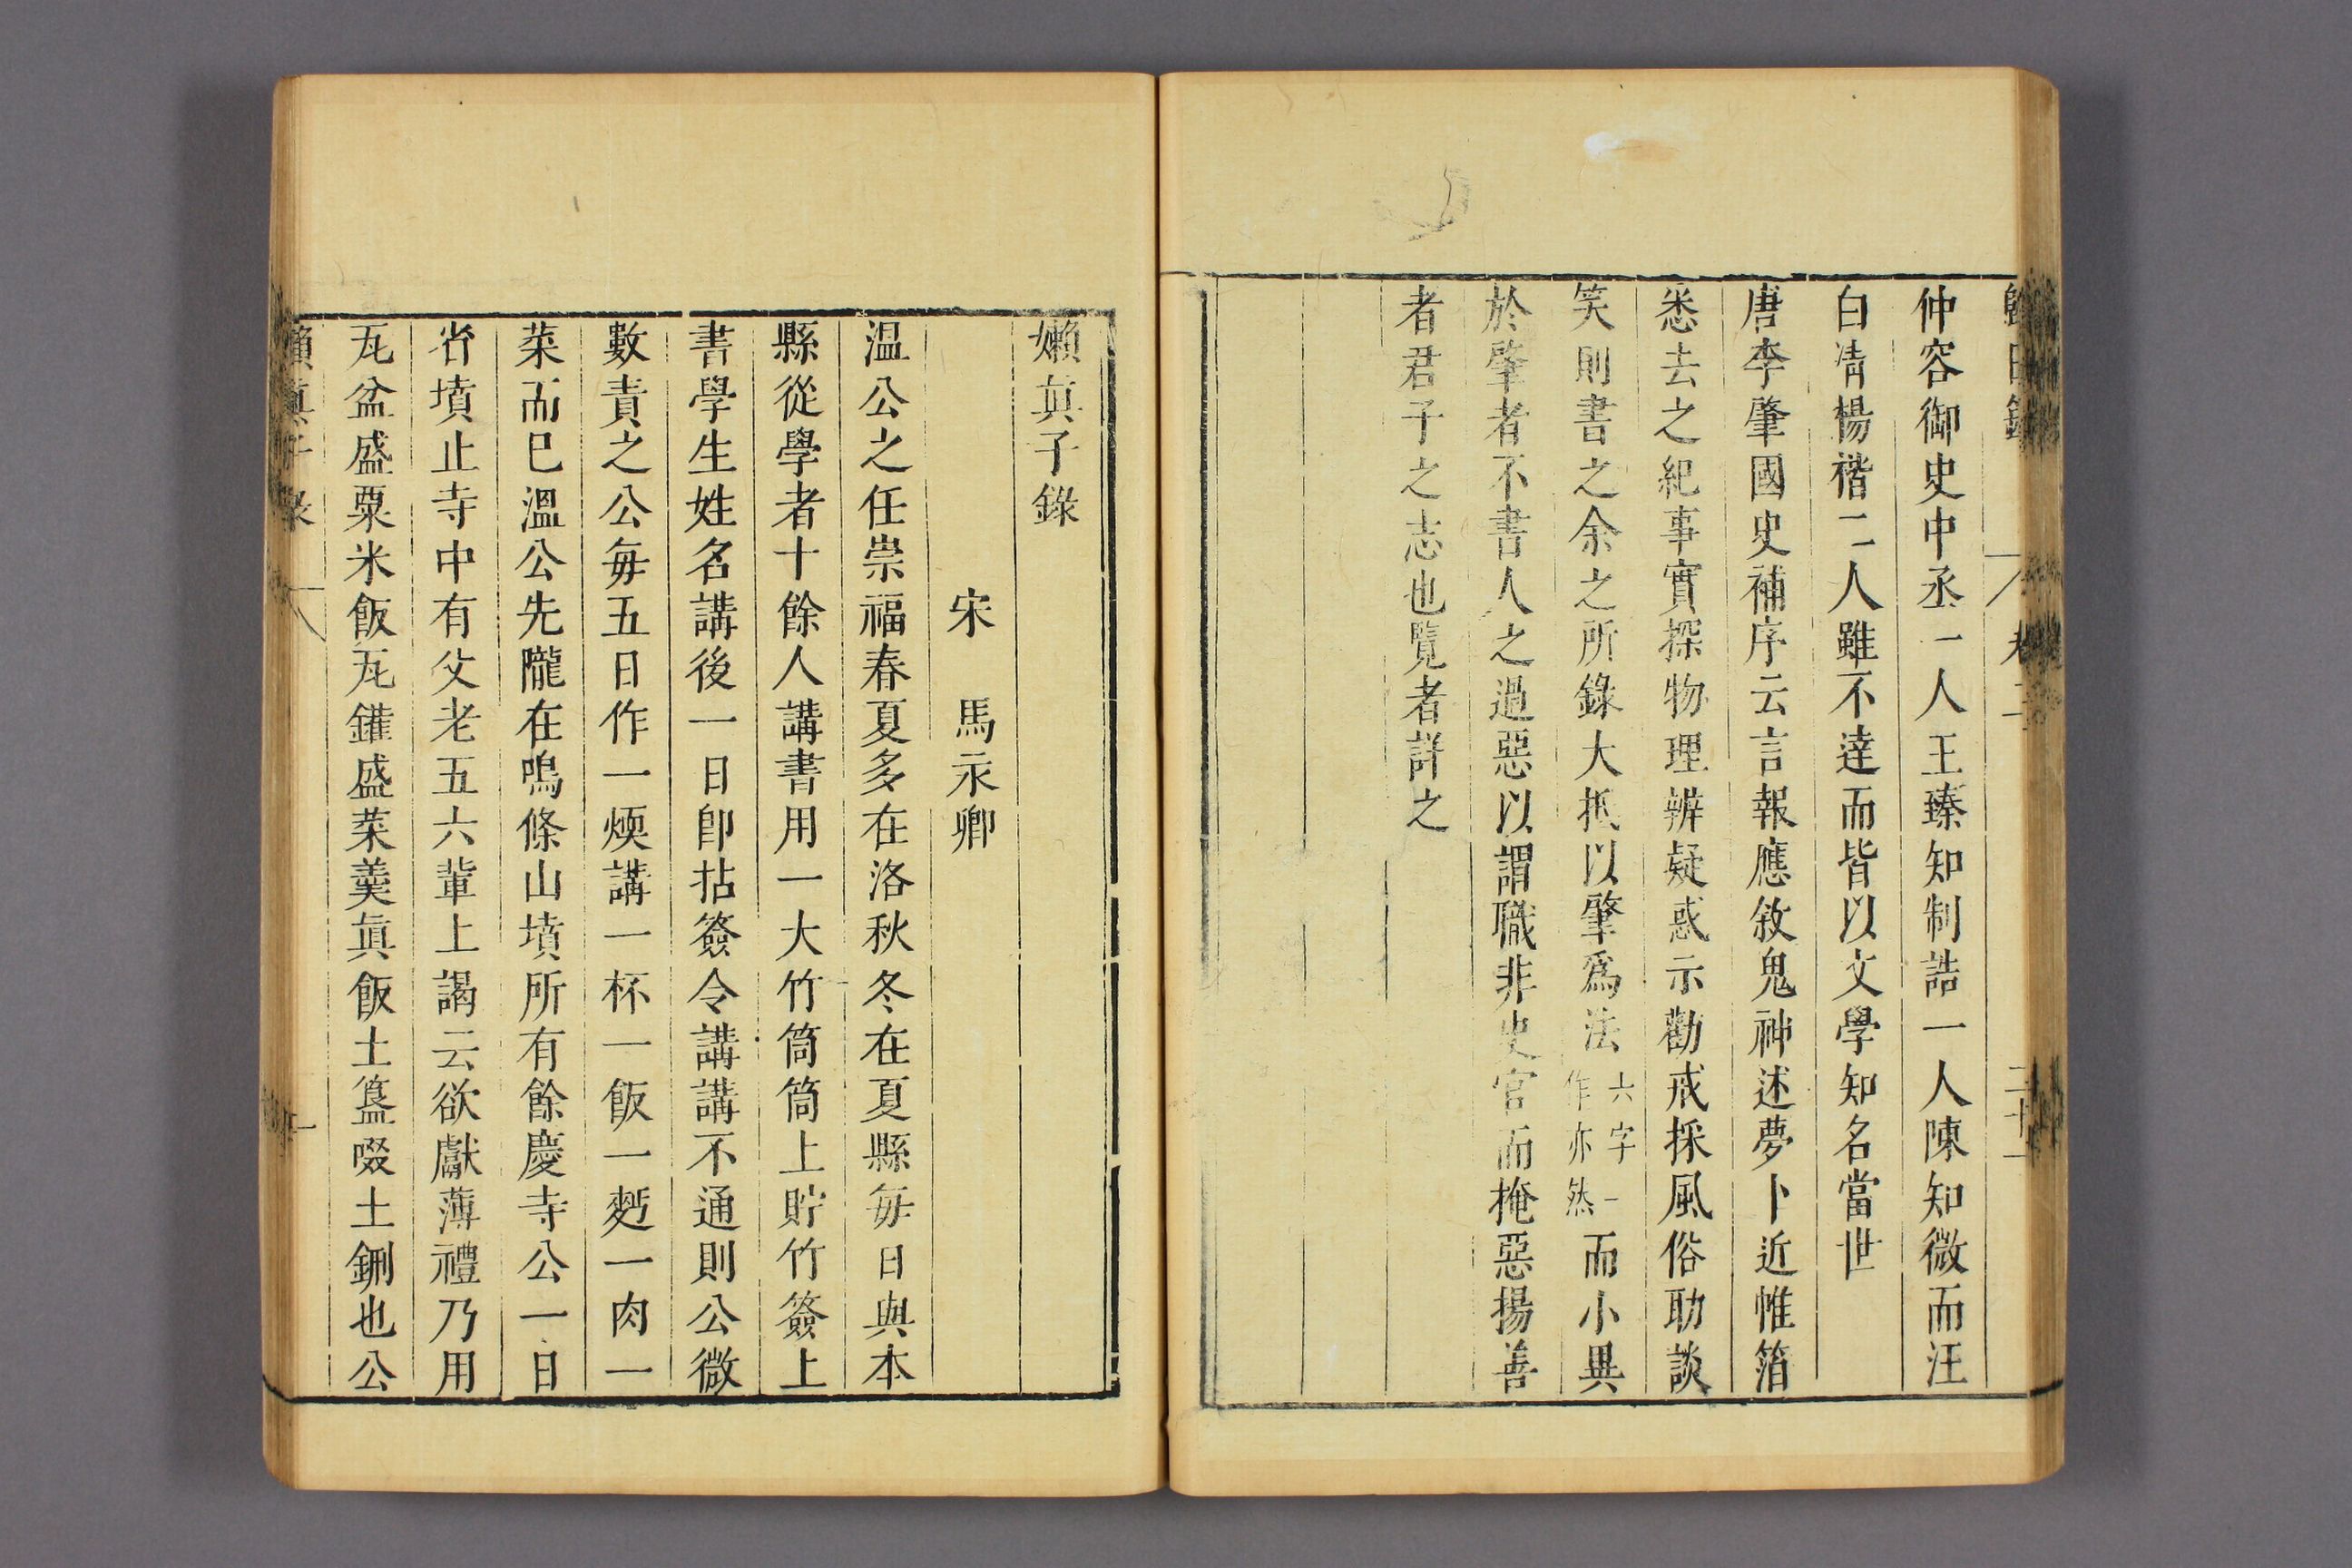 歸田錄 卷二 二十一
仲容御史中丞一人王臻知制誥一人陳知微而汪
白凊楊楷二人雖不達而皆以文學知名當世
唐李肇國史補序云言報應敘鬼神述夢卜近帷箔
悉去之紀事實探物理辨疑惑示勸戒採風俗助談
笑則書之余之所錄大抵以肇爲法六字一作亦然而小異
於肇者不書人之過惡以謂職非史官而掩惡揚善
者君子之志也覽者詳之
嬾真子錄
宋 馬永卿
温公之任崇福春夏多在洛秋冬在夏縣每日與本
縣從學者十餘人講書用一大竹筒筒上貯竹簽上
書學生姓名講後一日卽拈簽令講講不通則公微
數責之公每五日作一煖講一杯一飯一麪一肉一
菜而已溫公先隴在鳴條山墳所有餘慶寺公一日
省墳止寺中有父老五六輩上謁云欲獻薄禮乃用
瓦盆盛粟米飯瓦鑵盛菜羹真飯土簋啜土鉶也公
嬾真子錄 一